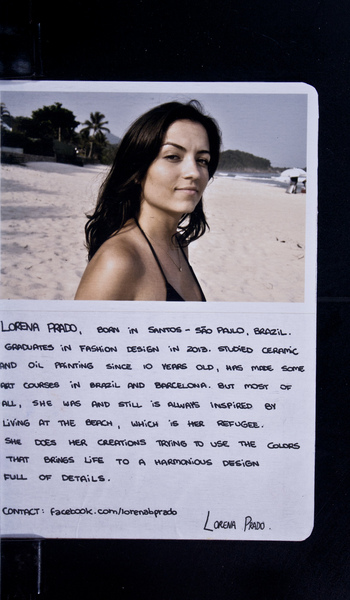 LORENA PRADO, BORN IN SANTOS - SÃO PAULO, BRAZIL.
GRADUATES IN FASHION DESIGN IN 2013. STUDIED CERAMIC
AND OIL PAINTING SINCE 10 YEARS OLD, HAS MADE SOME
ART COURSES IN BRAZIL AND BARCELONA. BUT MOST OF
ALL, SHE WAS AND STILL IS ALWAYS INSPIRED BY
LIVING AT THE BEACH, WHICH IS HER REFUGEE.
SHE DOES HER CREATIONS TRYING TO USE THE COLORS
THAT BRINGS LIFE TO A HARMONIOUS DESIGN
FULL OF DETAILS.
CONTACT: facebook.com/lorenabprado
LORENA PRADO.